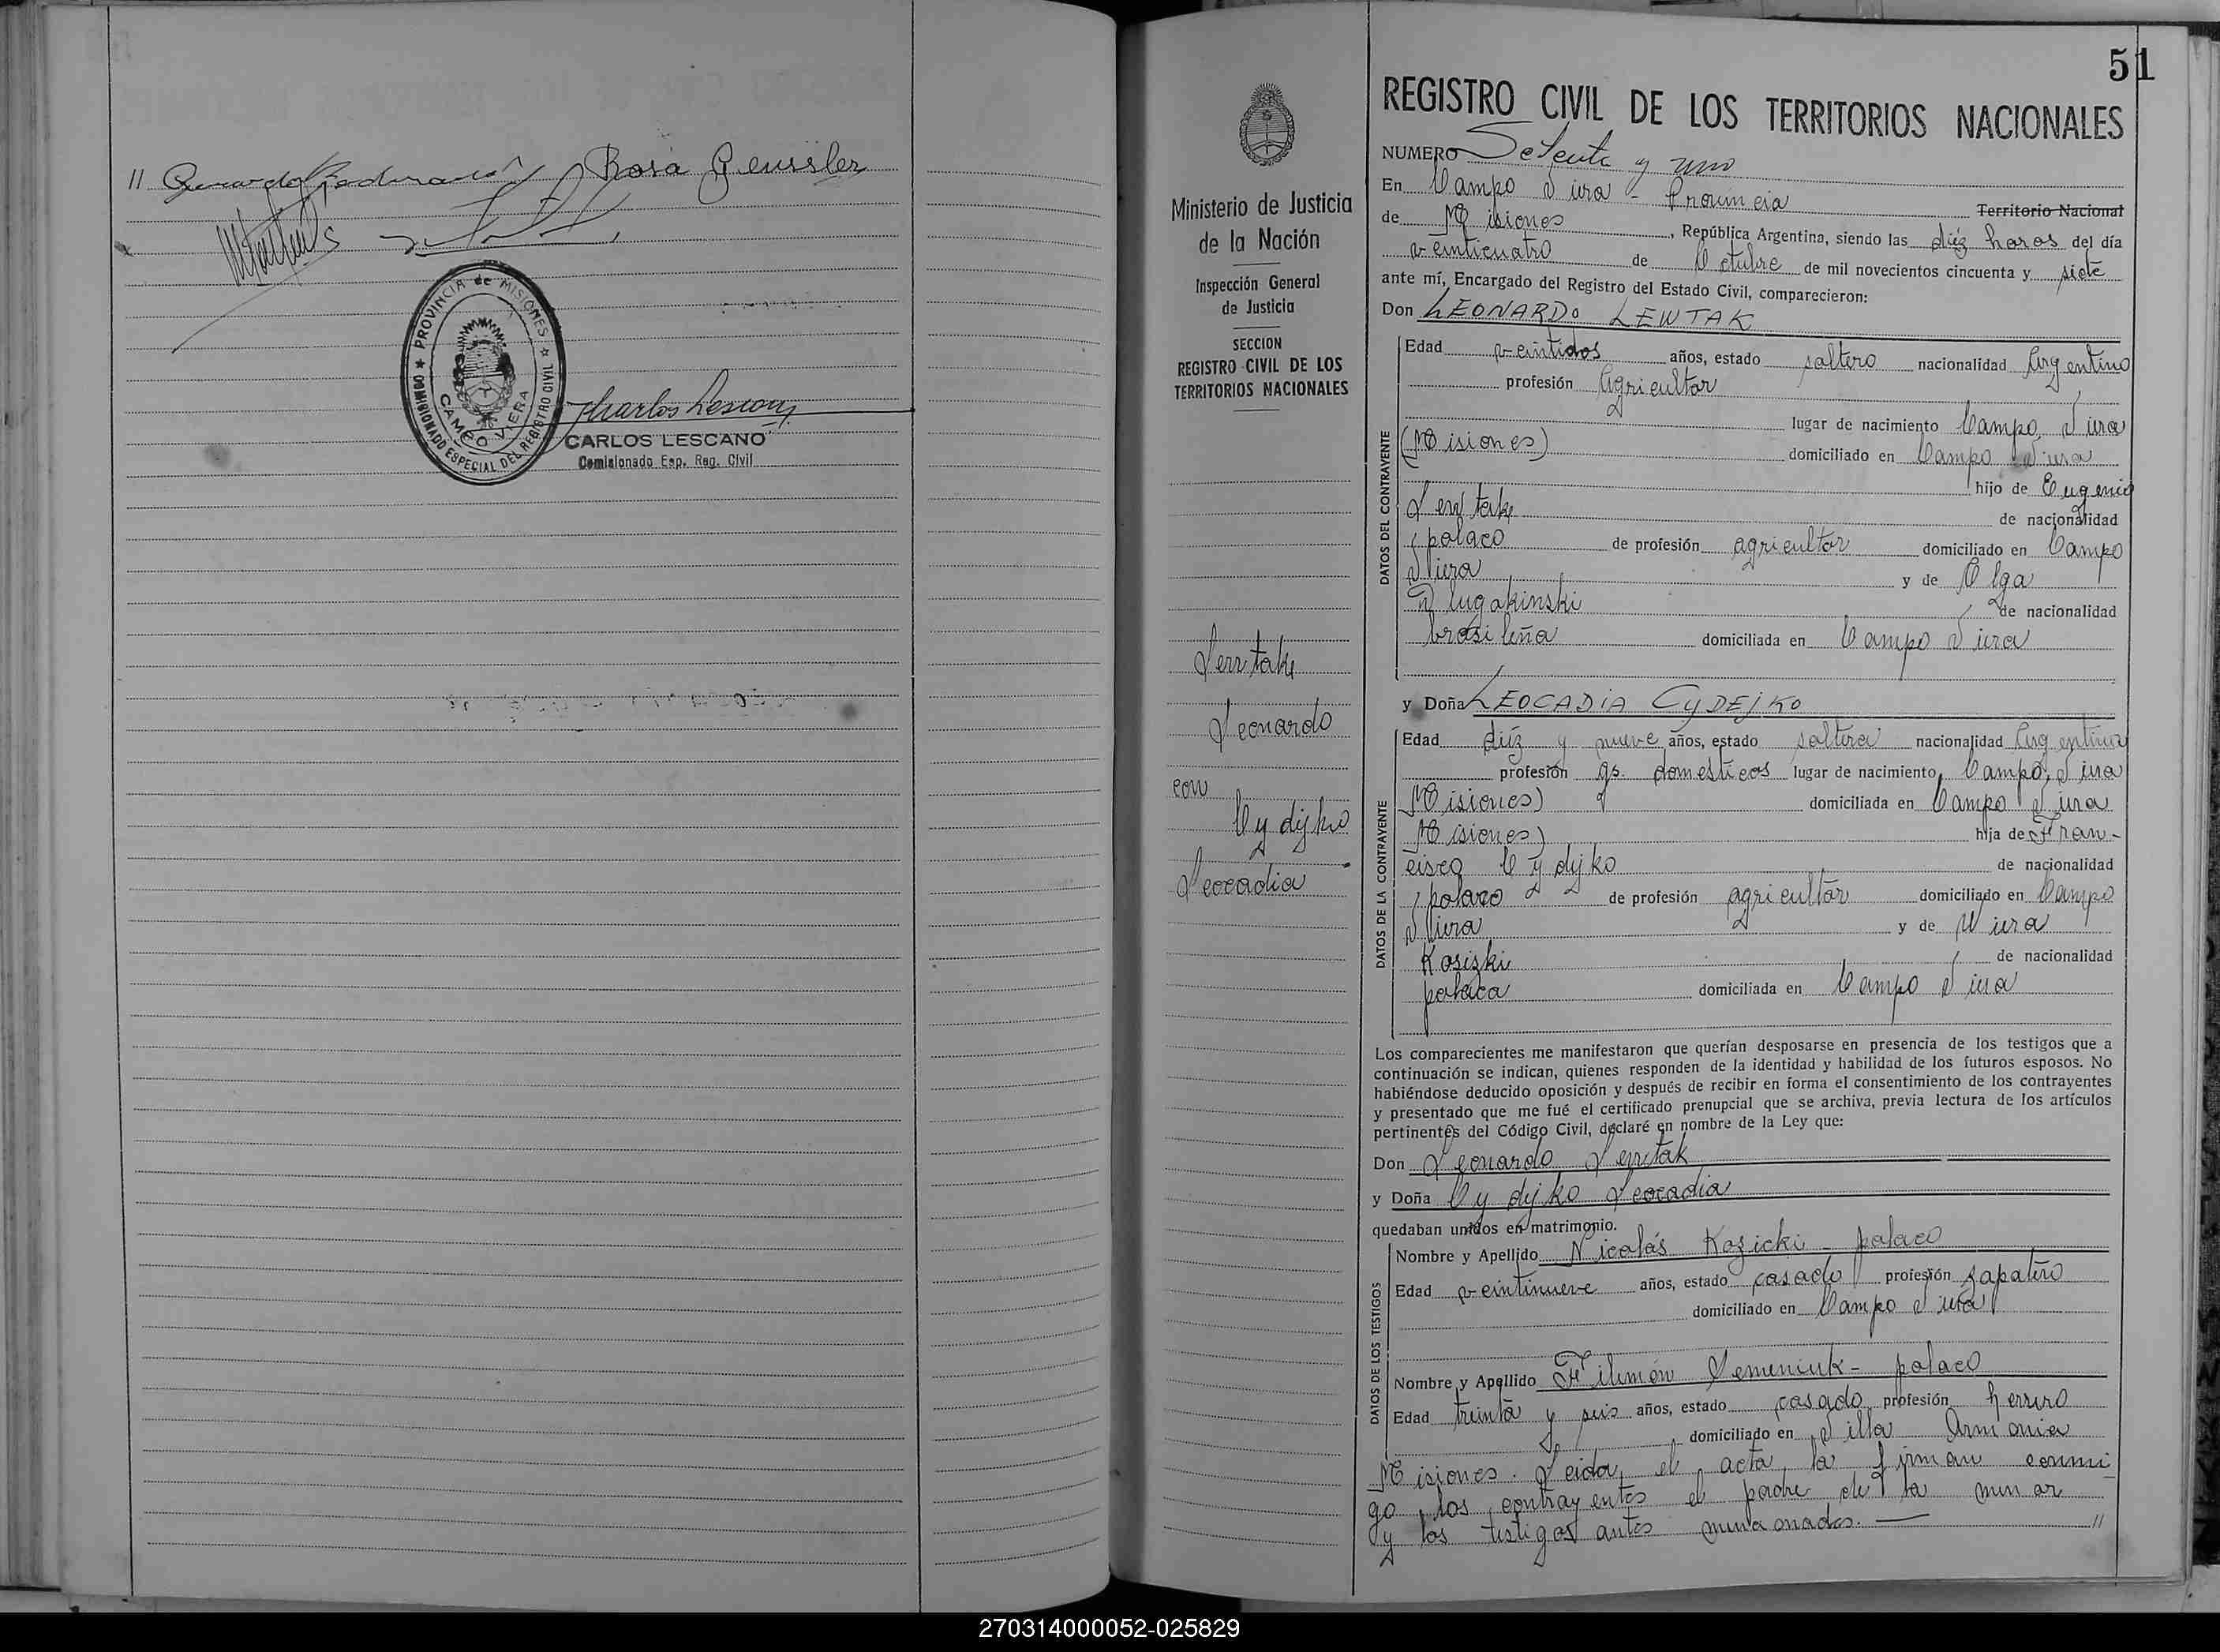 // Gerardo Rosa Geussler
PROVINCIA de MISIONES
COMISIONADO ESPECIAL DEL REGISTRO CIVIL
CAMPO VIERA
CARLOS LESCANO
Comisionado Esp. Reg. Civil
51
Ministerio de Justicia
de la Nación
Inspección General
de Justicia
SECCION
REGISTRO CIVIL DE LOS
TERRITORIOS NACIONALES
Lewtak
Leonardo
con
Cydejko
Leocadia
REGISTRO CIVIL DE LOS TERRITORIOS NACIONALES
NUMERO Setenta y uno
En Campo Viera - Provincia Territorio Nacional
de Misiones, República Argentina, siendo las diéz horas del día
veinticuatro de Octubre de mil novecientos cincuenta y siete
ante mí, Encargado del Registro del Estado Civil, comparecieron:
Don LEONARDO LEWTAK
DATOS DEL CONTRAYENTE
Edad veintidos años, estado soltero nacionalidad Argentino
profesión Agricultor
lugar de nacimiento Campo Viera
(Misiones) domiciliado en Campo Viera
hijo de Eugenio
Lewtak de nacionalidad
polaco de profesión agricultor domiciliado en Campo
Viera y de Olga
de nacionalidad
brasileña domiciliada en Campo Viera
y Doña LEOCADIA CYDEJKO
DATOS DE LA CONTRAYENTE
Edad diéz y nueve años, estado soltera nacionalidad Argentina
profesión qs. domésticos lugar de nacimiento Campo Viera
Misiones) domiciliada en Campo Viera
Misiones) hija de Fran-
cisco Cydyjko de nacionalidad
polaco de profesión agricultor domiciliado en Campo
Viera y de Viera
Kosizki de nacionalidad
polaca domiciliada en Campo Viera
Los comparecientes me manifestaron que querían desposarse en presencia de los testigos que a
continuación se indican, quienes responden de la identidad y habilidad de los futuros esposos. No
habiéndose deducido oposición y después de recibir en forma el consentimiento de los contrayentes
y presentado que me fué el certificado prenupcial que se archiva, previa lectura de los artículos
pertinentes del Código Civil, declaré en nombre de la Ley que:
Don Leonardo Lewtak
y Doña Cydyjko Leocadia
quedaban unidos en matrimonio.
DATOS DE LOS TESTIGOS
Nombre y Apellido Nicolás Kozicki - polaco
Edad veintinueve años, estado casado profesión zapatero
domiciliado en Campo Viera
Nombre y Apellido Filimón Semeniuk - polaco
Edad treinta y seis años, estado casado profesión herrero
domiciliado en Villa Armonia
Misiones. Leida el acta la firman conmi
go los contrayentes el padre de la menor
y los testigos antes mencionados. — //
270314000052-025829